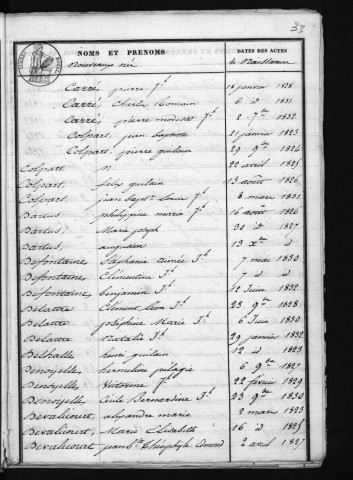 33
NOMS ET PRÉNOMS
DATES DES ACTES
Nouveaux né
de Naissance
Carré, pierre Jh 18 janvier 1828
Carré, Charle Romain 6 id 1831
Carré, pierre modeste Jh 2 7bre 1832
Colpart, jean baptiste 21 janvier 1823
Colpart, pierre guilain 29 9bre 1824
Colpart n. 22 avril 1825
Colpart, félix guilain 13 août 1826
Colpart, jean bapte Louis Jh 8 mars 1831
Dartus philippine marie Jh 16 août 1826
Dartus, Marie joseph 30 id 1827
Dartus, augustin 13 Xbre id
Defontaine Stéphanie aimée Jh 7 mai 1830
Defontaine Clémentine Jh 7 id id
Defontaine benjamin Jh 12 Juin 1832
Delattre Clément Léon Jh 23 9bre 1828
Delattre joséphine Marie Jh 6 Juin 1830
Delattre natalie Jh 29 janvier 1832
Delhalle henri guilain 12 id 1823
Denoyelle hermeline pélagie 6 9bre 1827
Denoyelle Victorine Jh 22 février 1829
Denoyelle Cécile Bernardine Jh 23 9bre 1830
Devalicourt, alexandre marie 2 mars 1823
Devalicourt, Marie Elisabeth 16 id 1825
Devalicourt jean bte Théophyle Edmond 2 avril 1827